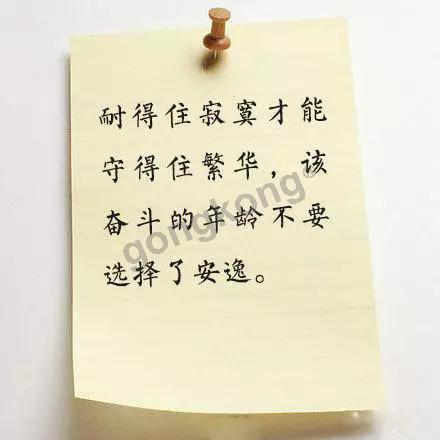 耐得住寂寞才能
守得住繁华，该
奋斗的年龄不要
选择了安逸。
gongkong®